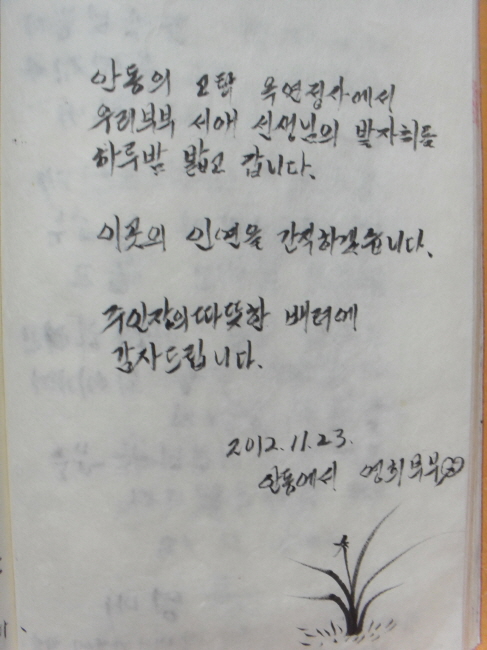 안동의 고택 옥연정사에서
우리부부 서애 선생님의 발자취를
하루밤 밟고 갑니다.
이곳의 인연을 간직하겠습니다.
주인장의 따뜻한 배려에
감사드립니다.
2012.11.23.
안동에서 영희부부